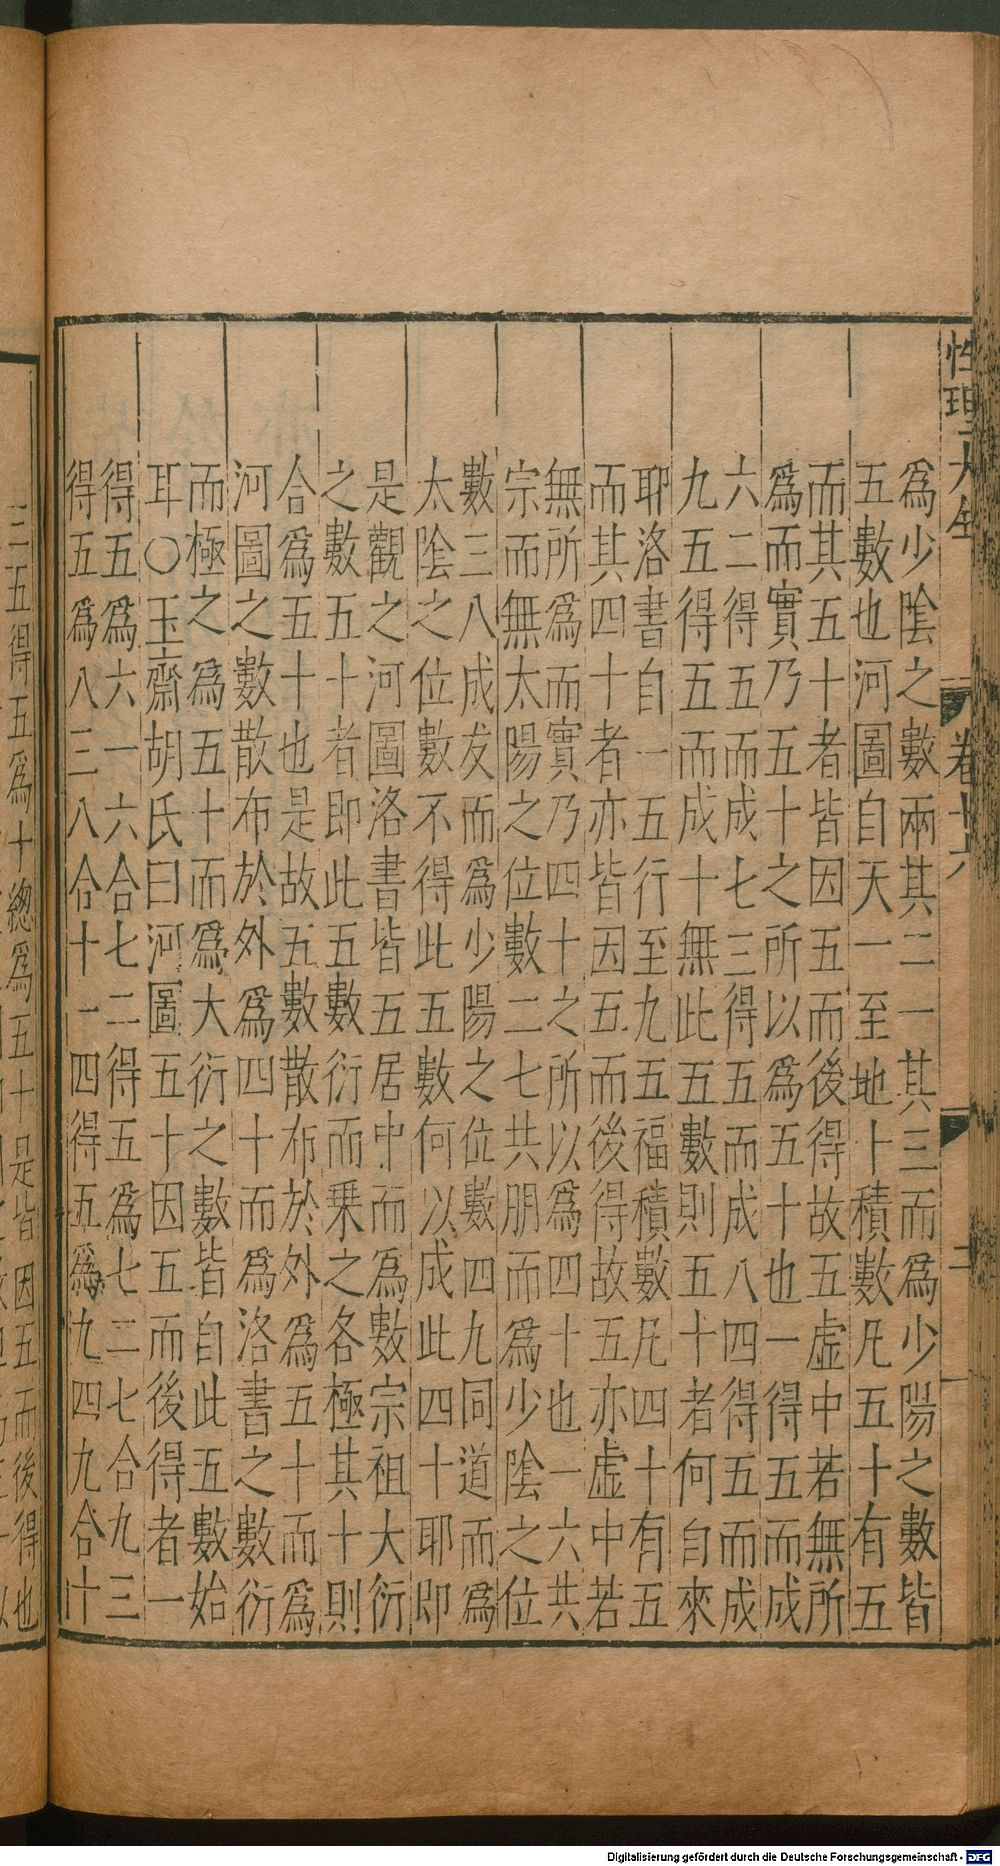 性理大全 卷十六 二
爲少陰之數兩其二一其三而爲少陽之數皆
五數也河圖自天一至地十積數凡五十有五
而其五十者皆因五而後得故五虛中若無所
爲而實乃五十之所以爲五十也一得五而成
六二得五而成七三得五而成八四得五而成
九五得五而成十無此五數則五十者何自來
耶洛書自一五行至九五福積數凡四十有五
而其四十者亦皆因五而後得故五亦虛中若
無所爲而實乃四十之所以爲四十也一六共
宗而無太陽之位數二七共朋而爲少陰之位
數三八成友而爲少陽之位數四九同道而爲
太陰之位數不得此五數何以成此四十耶即
是觀之河圖洛書皆五居中而爲數宗祖大衍
之數五十者即此五數衍而乗之各極其十則
合爲五十也是故五數散布於外爲五十而爲
河圖之數散布於外爲四十而爲洛書之數衍
而極之爲五十而爲大衍之數皆自此五數始
耳○玉齋胡氏曰河圖五十因五而後得者一
得五爲六一六合七二得五爲七二七合九三
得五爲八三八合十一四得五爲九四九合十
三五得五爲十總爲五十是皆因五而後得也
Digitalisierung gefördert durch die Deutsche Forschungsgemeinschaft - DFG